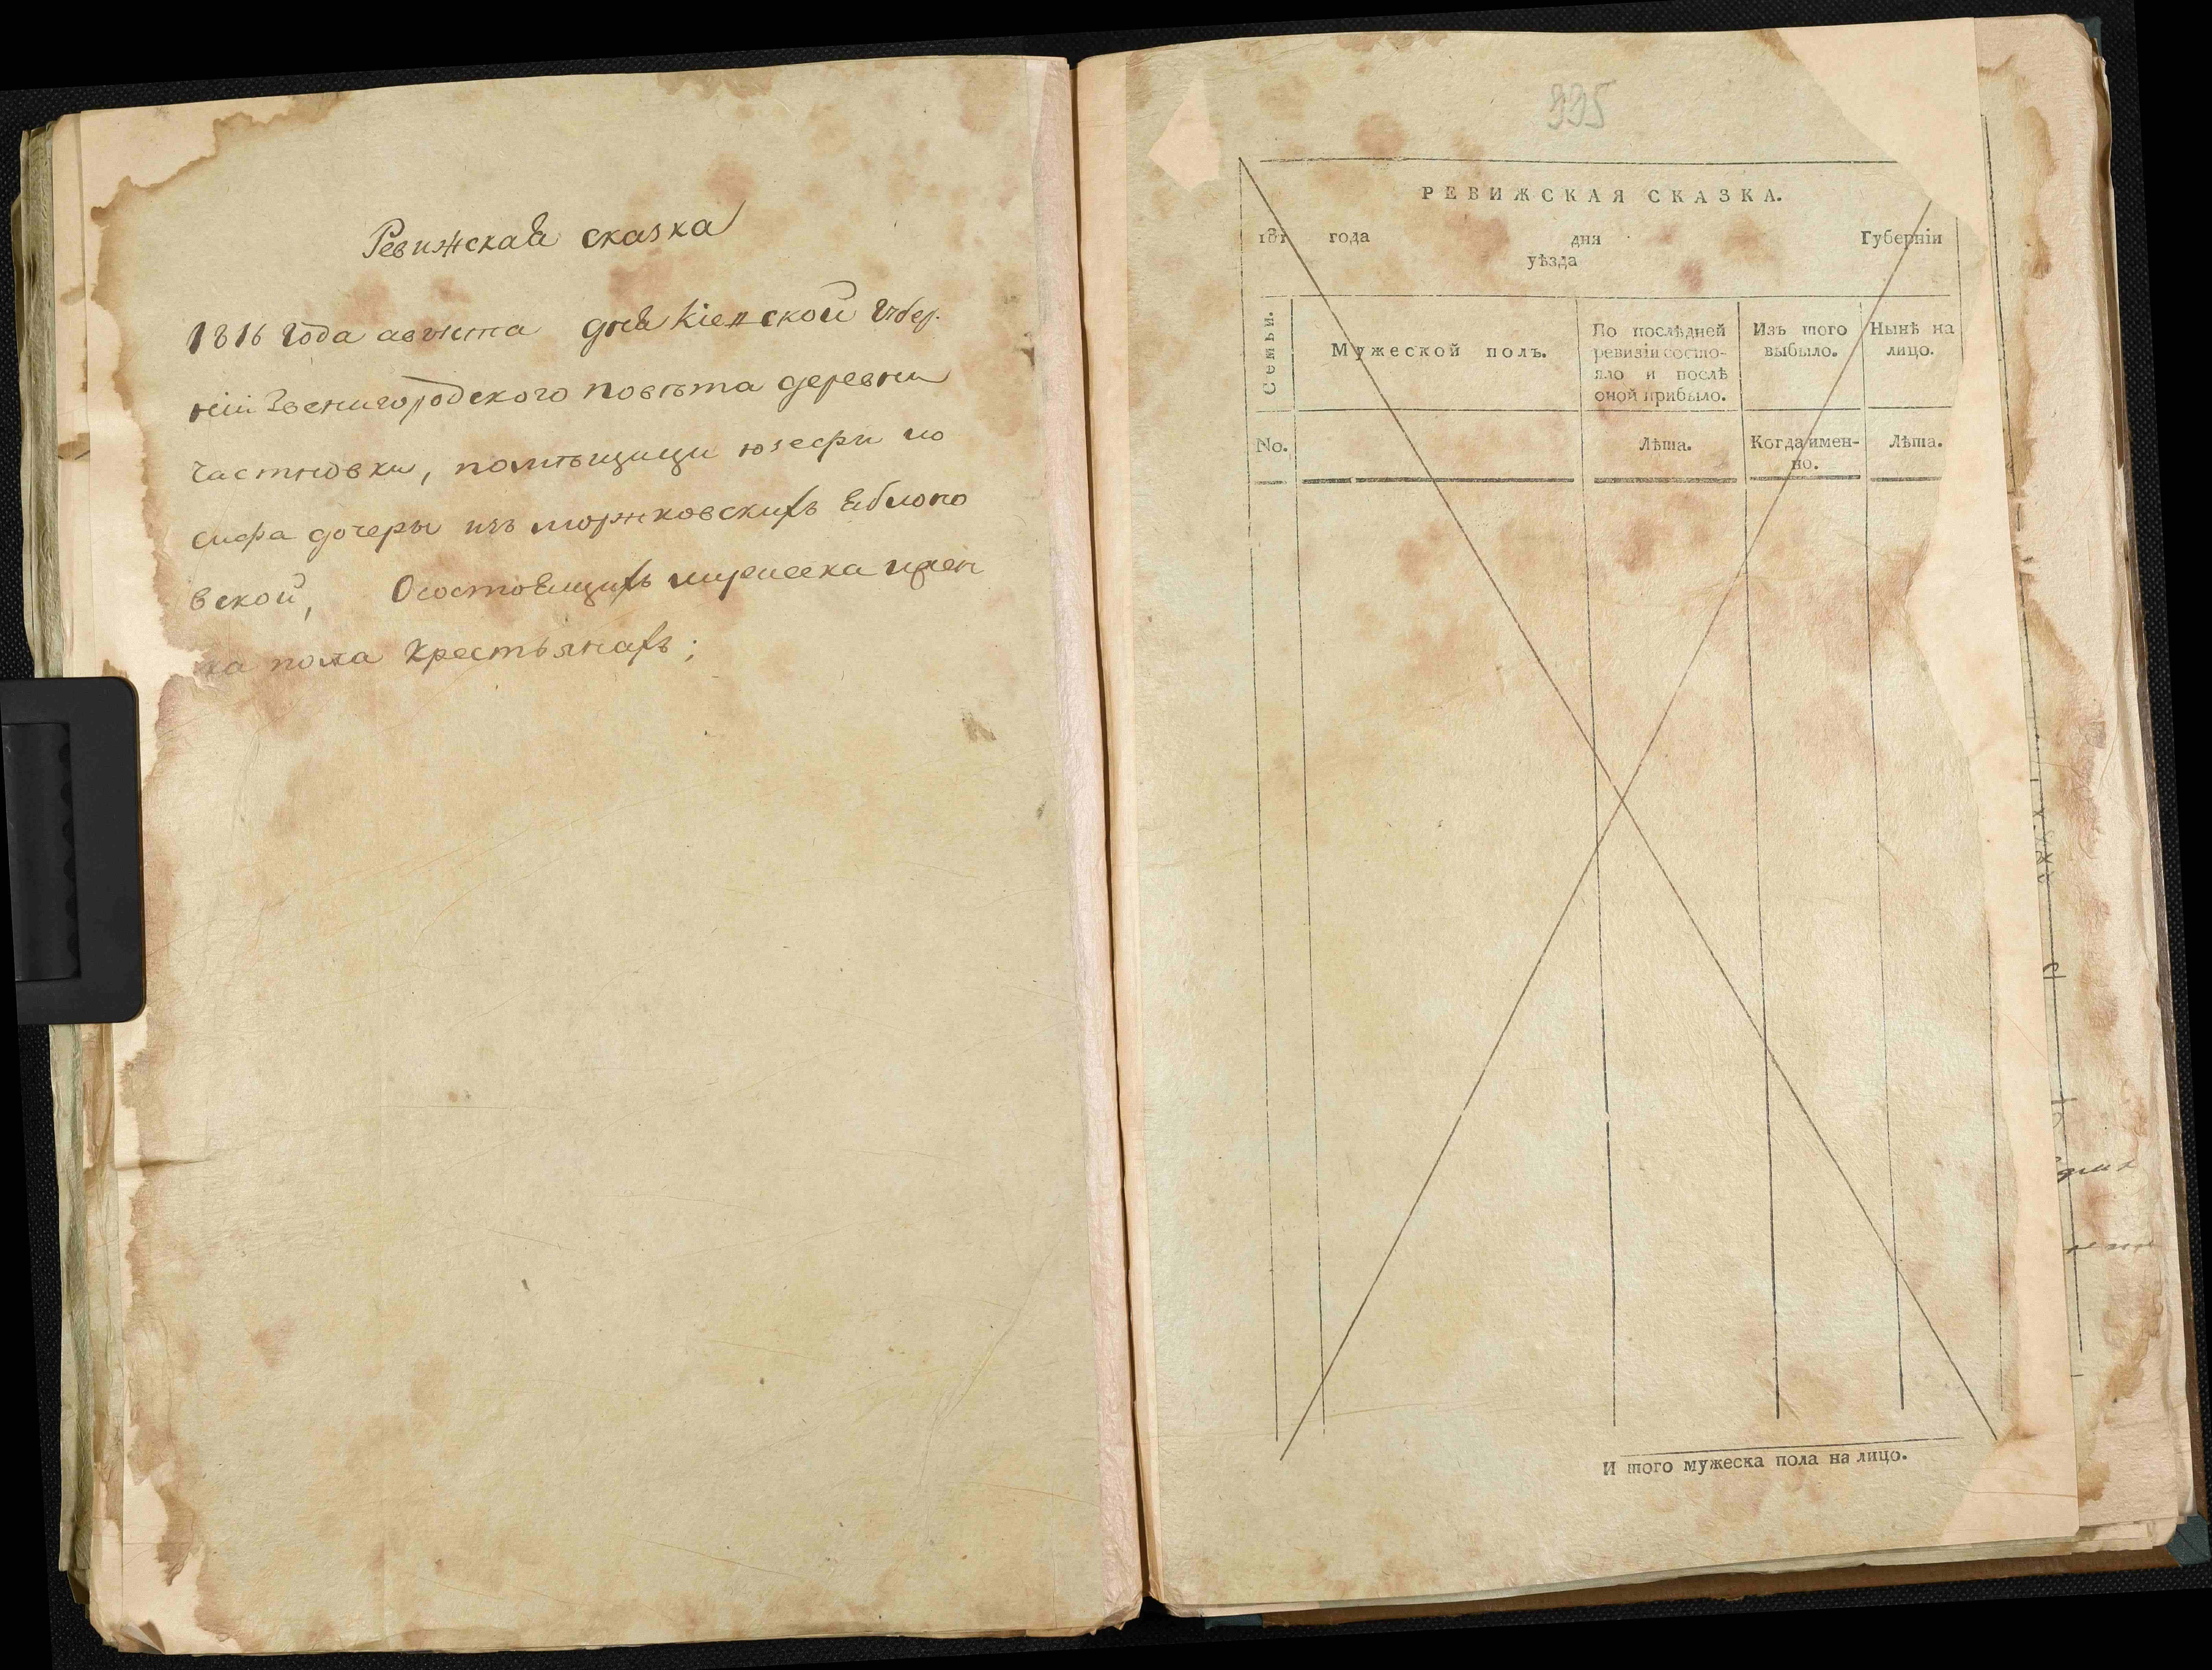 Ревижская сказка
1816 года августа дня Кіевской Губер.
ніи Звенигородского повѣта деревни
Частновки, помѣщицы юзефи іо
сифа дочеры изъ моржковскихъ яблоно
вской, О состоящихъ мужеска и жен
ка пола крестьянахъ;
995
РЕВИЖСКАЯ СКАЗКА.
181 года дня Губерніи
уѣзда
Семьи.
Мужеской полъ.
По послѣдней
ревизіи состо-
яло и послѣ
оной прибыло.
Изъ того
выбыло.
Нынѣ на
лицо.
No.
Лѣта.
Когда имен-
но.
Лѣта.
И того мужеска пола на лицо.